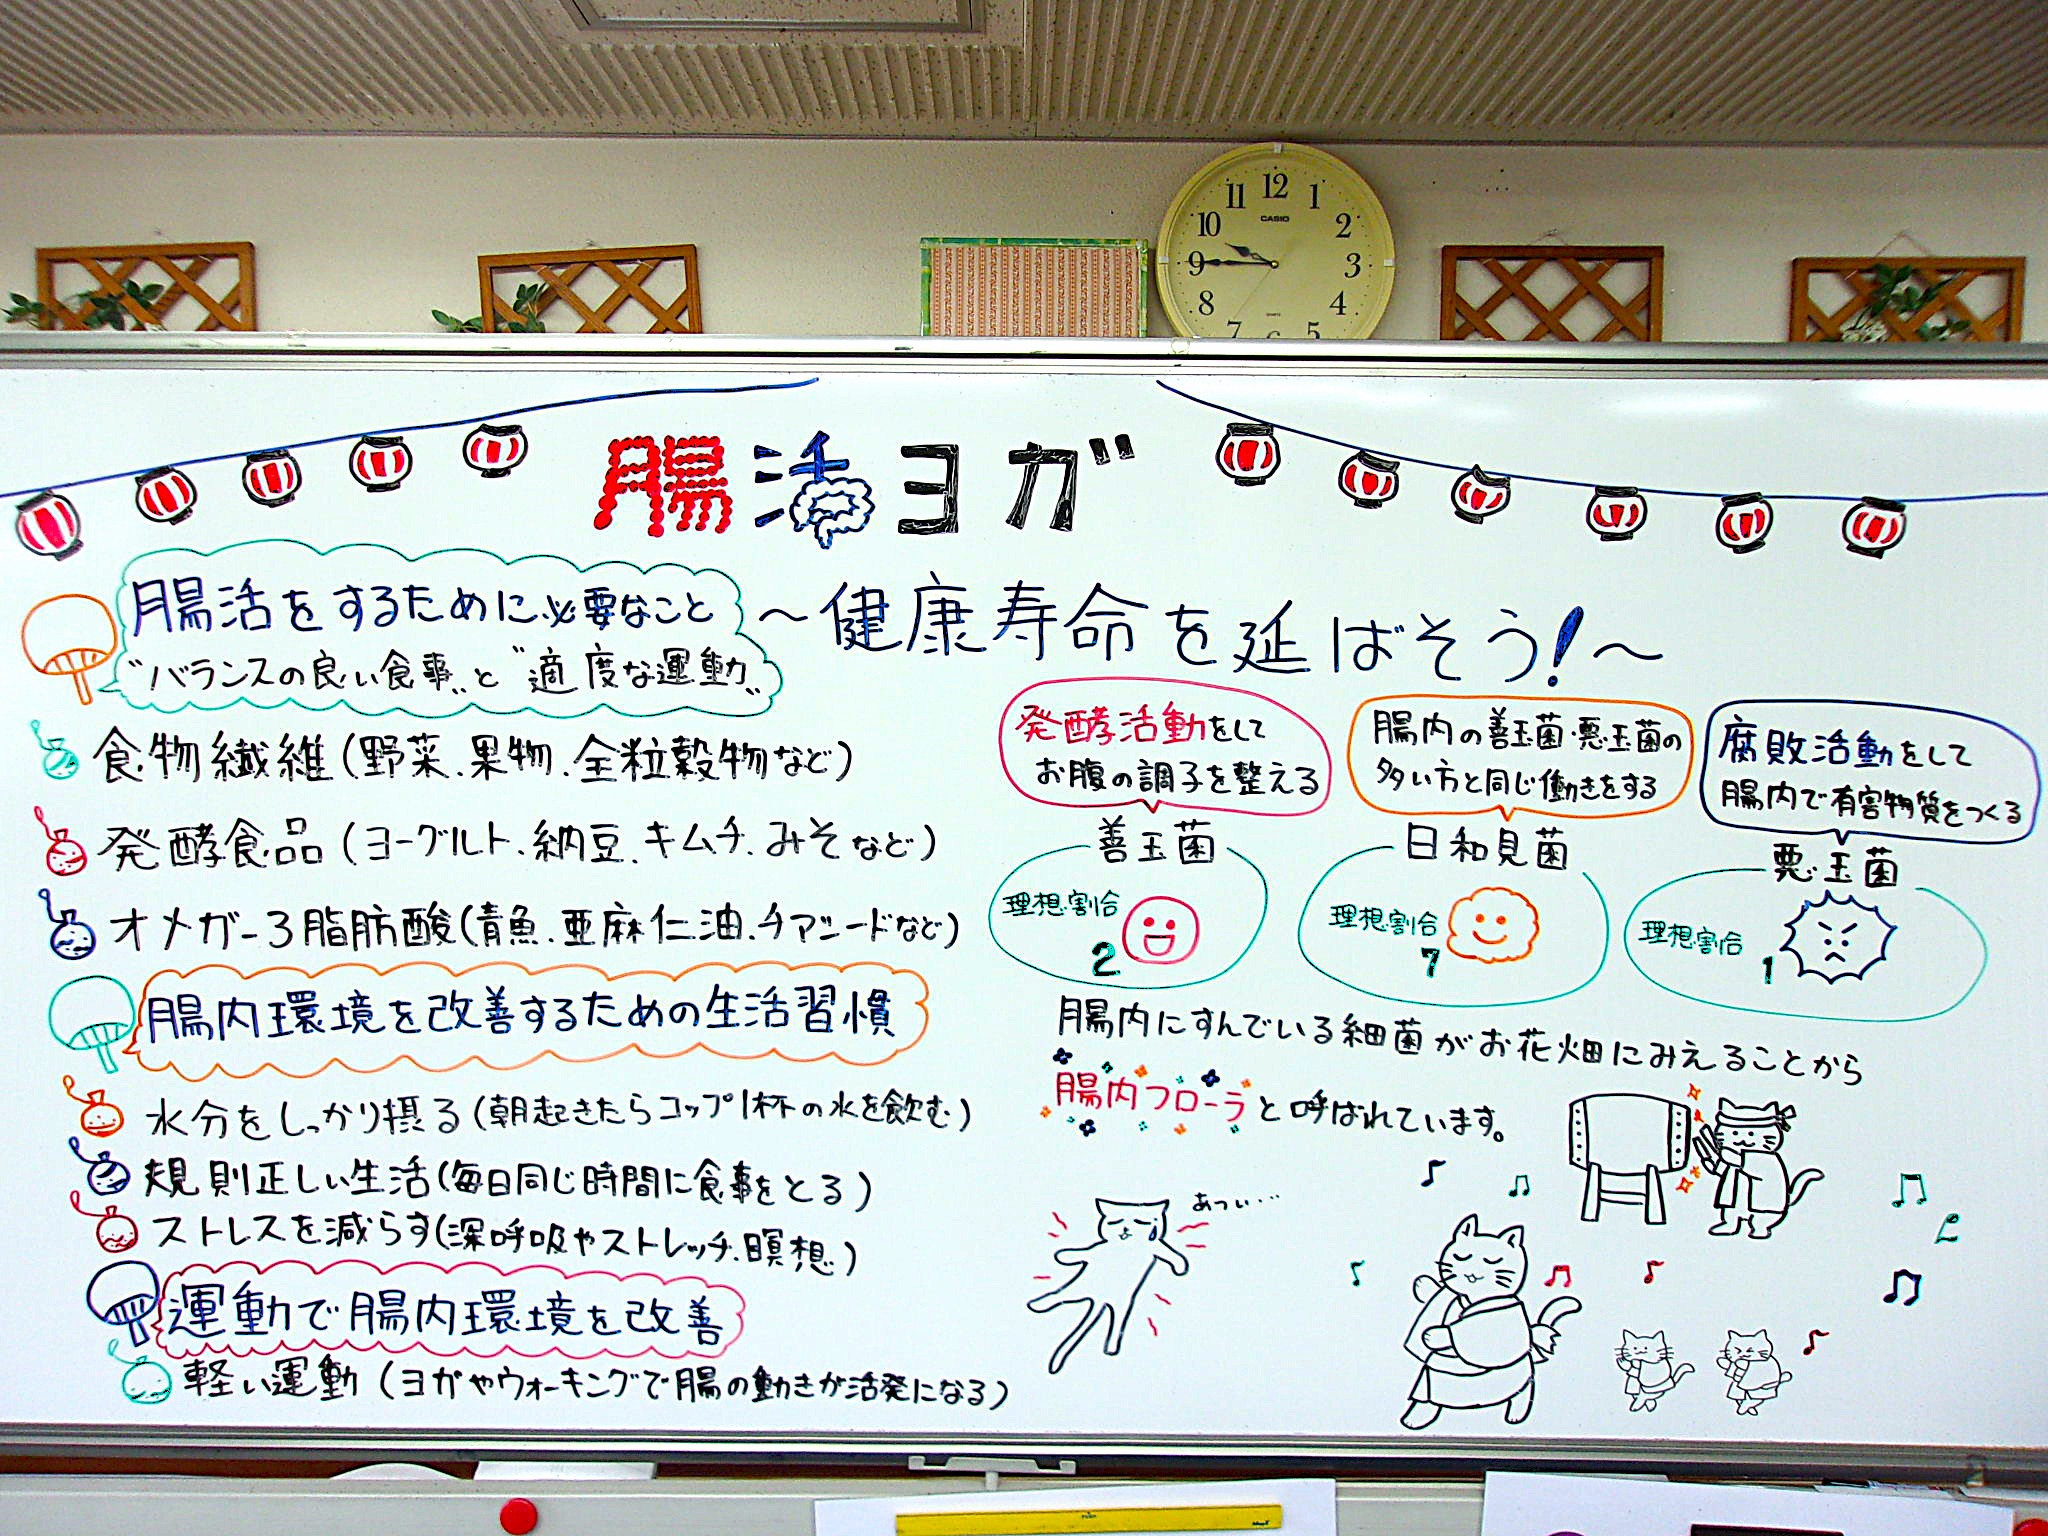 12
11
1
10
2
CASIO
9
3
8
4
7
5
腸活ヨガ
～健康寿命を延ばそう!～
腸活をするために必要なこと
"バランスの良い食事"と"適度な運動"
食物繊維(野菜.果物.全粒穀物など)
発酵食品(ヨーグルト.納豆.キムチ.みそなど)
オメガ-3脂肪酸(青魚.亜麻仁油.チアシードなど)
腸内環境を改善するための生活習慣
水分をしっかり摂る(朝起きたらコップ1杯の水を飲む)
規則正しい生活(毎日同じ時間に食事をとる)
ストレスを減らす(深呼吸やストレッチ.瞑想)
運動で腸内環境を改善
軽い運動(ヨガやウォーキングで腸の動きが活発になる)
発酵活動をして
お腹の調子を整える
善玉菌
理想割合
2
腸内の善玉菌・悪玉菌の
多い方と同じ働きをする
日和見菌
理想割合
7
腐敗活動をして
腸内で有害物質をつくる
悪玉菌
理想割合
1
腸内にすんでいる細菌がお花畑にみえることから
腸内フローラと呼ばれています。
あつい…